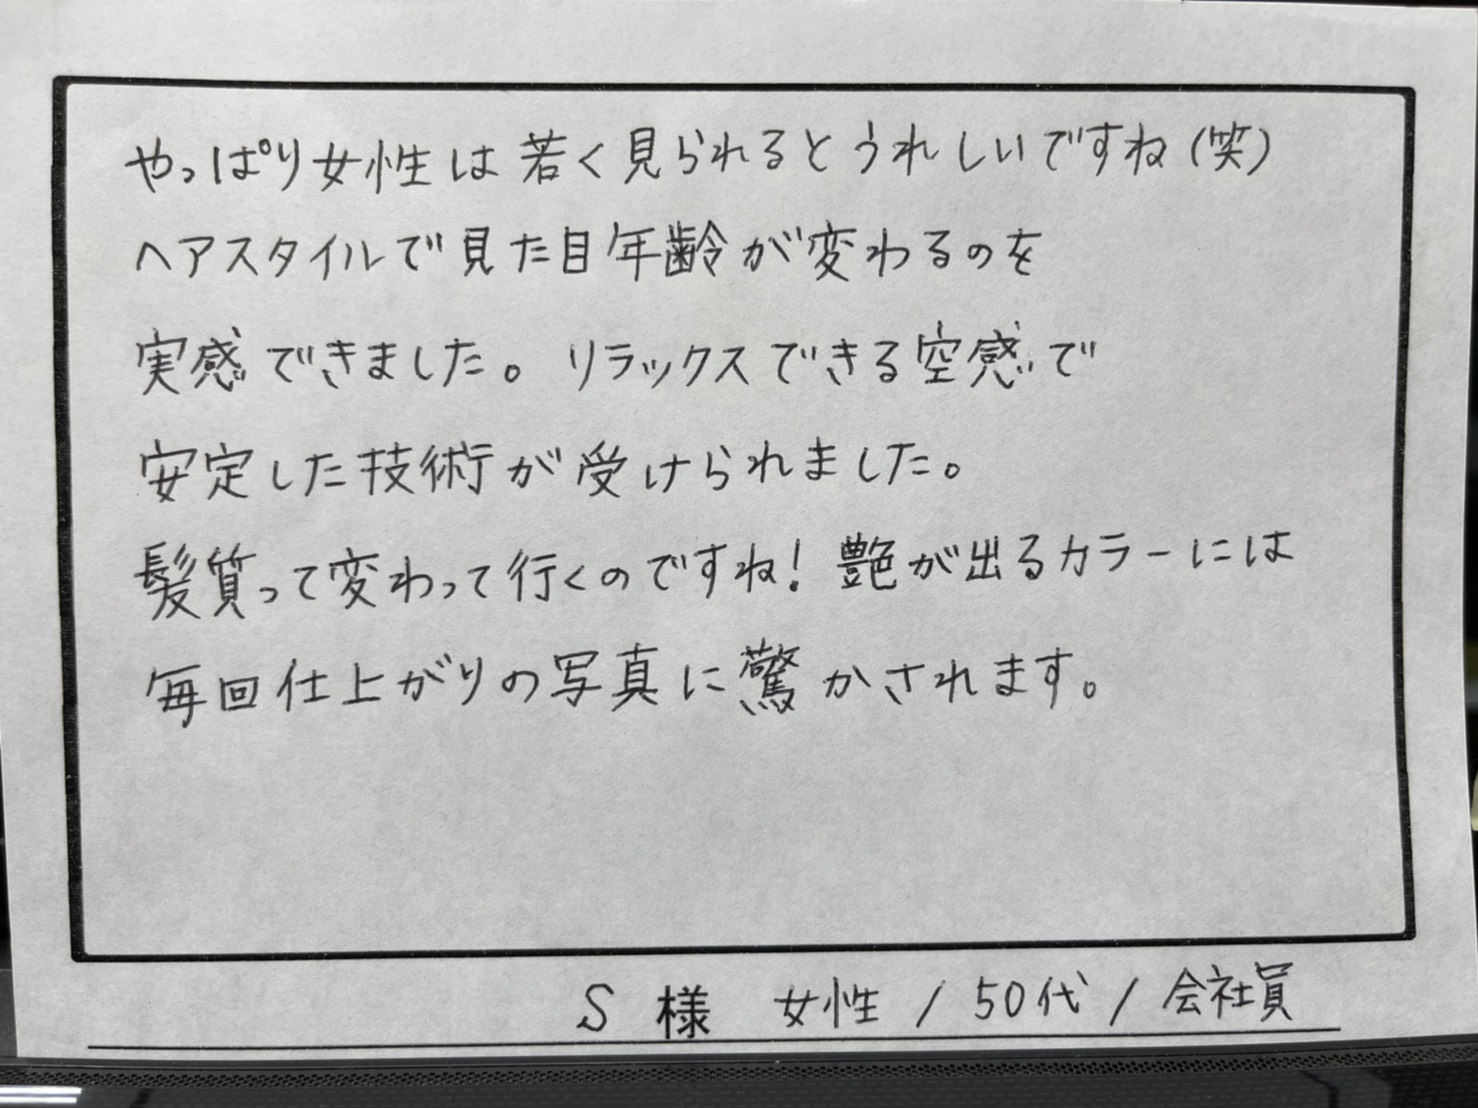 やっぱり女性は若く見られるとうれしいですね(笑)
ヘアスタイルで見た目年齢が変わるのを
実感できました。リラックスできる空感で
安定した技術が受けられました。
髪質って変わって行くのですね!艶が出るカラーには
毎回仕上がりの写真に驚かされます。
S 様 女性 / 50代 / 会社員